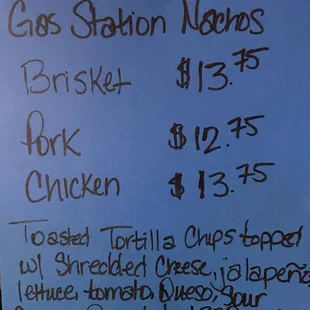 Gas Station Nachos
Brisket $13.75
Pork $12.75
Chicken $13.75
Toasted Tortilla Chips topped
w/ Shredded Cheese, jalapeño
lettuce, tomato, Queso, Sour